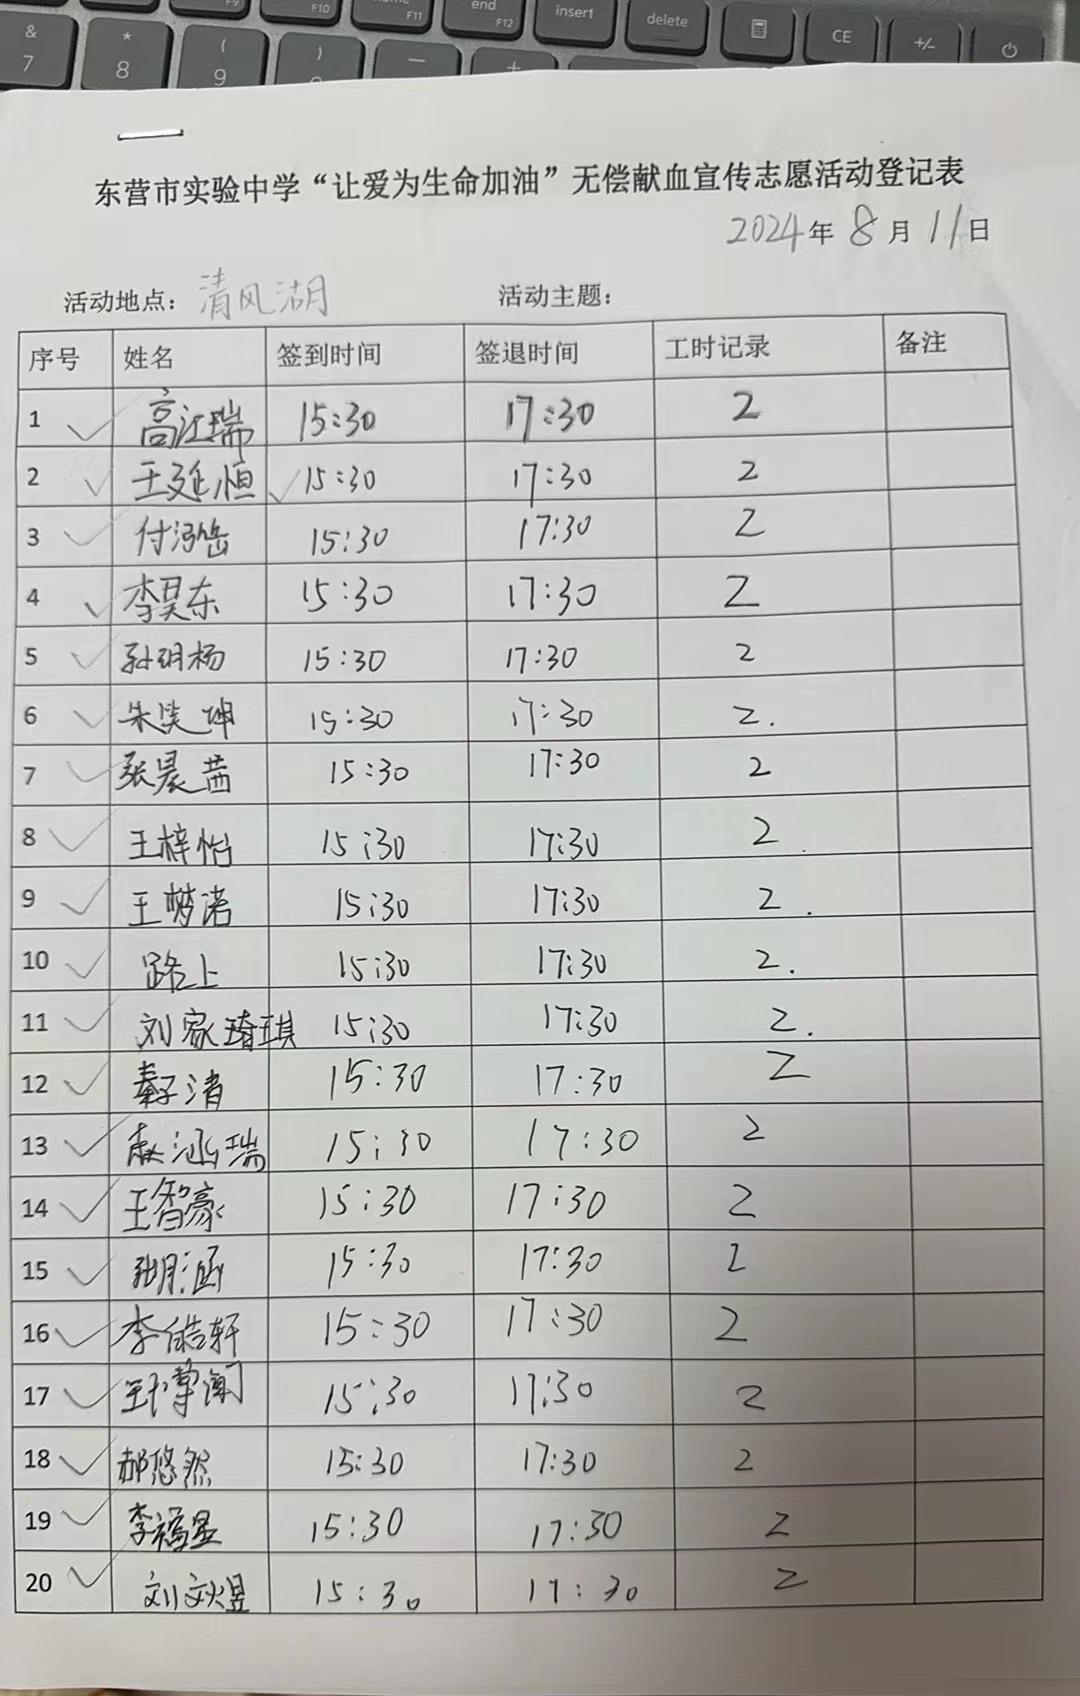 & 7
* 8
( 9
)
F9
F10
F11
end F12
insert
delete
CE
+/-
东营市实验中学“让爱为生命加油”无偿献血宣传志愿活动登记表
2024年 8月 11日
活动地点：清风湖 活动主题：
序号 姓名 签到时间 签退时间 工时记录 备注
1 高江瑞 15:30 17:30 2
2 王延恒 15:30 17:30 2
3 付泓岳 15:30 17:30 2
4 李昊东 15:30 17:30 2
5 孙玥杨 15:30 17:30 2
6 朱笑坤 15:30 17:30 2.
7 张晨茜 15:30 17:30 2
8 王梓怡 15:30 17:30 2
9 王梦诺 15:30 17:30 2.
10 路上 15:30 17:30 2.
11 刘家琦琪 15:30 17:30 2.
12 秦子清 15:30 17:30 2
13 赵涵瑞 15:30 17:30 2
14 王智豪 15:30 17:30 2
15 张彤涵 15:30 17:30 2
16 李皓轩 15:30 17:30 2
17 15:30 17:30 2
18 郝悠然 15:30 17:30 2
19 李福星 15:30 17:30 2
20 刘文煜 15:30 17:30 2